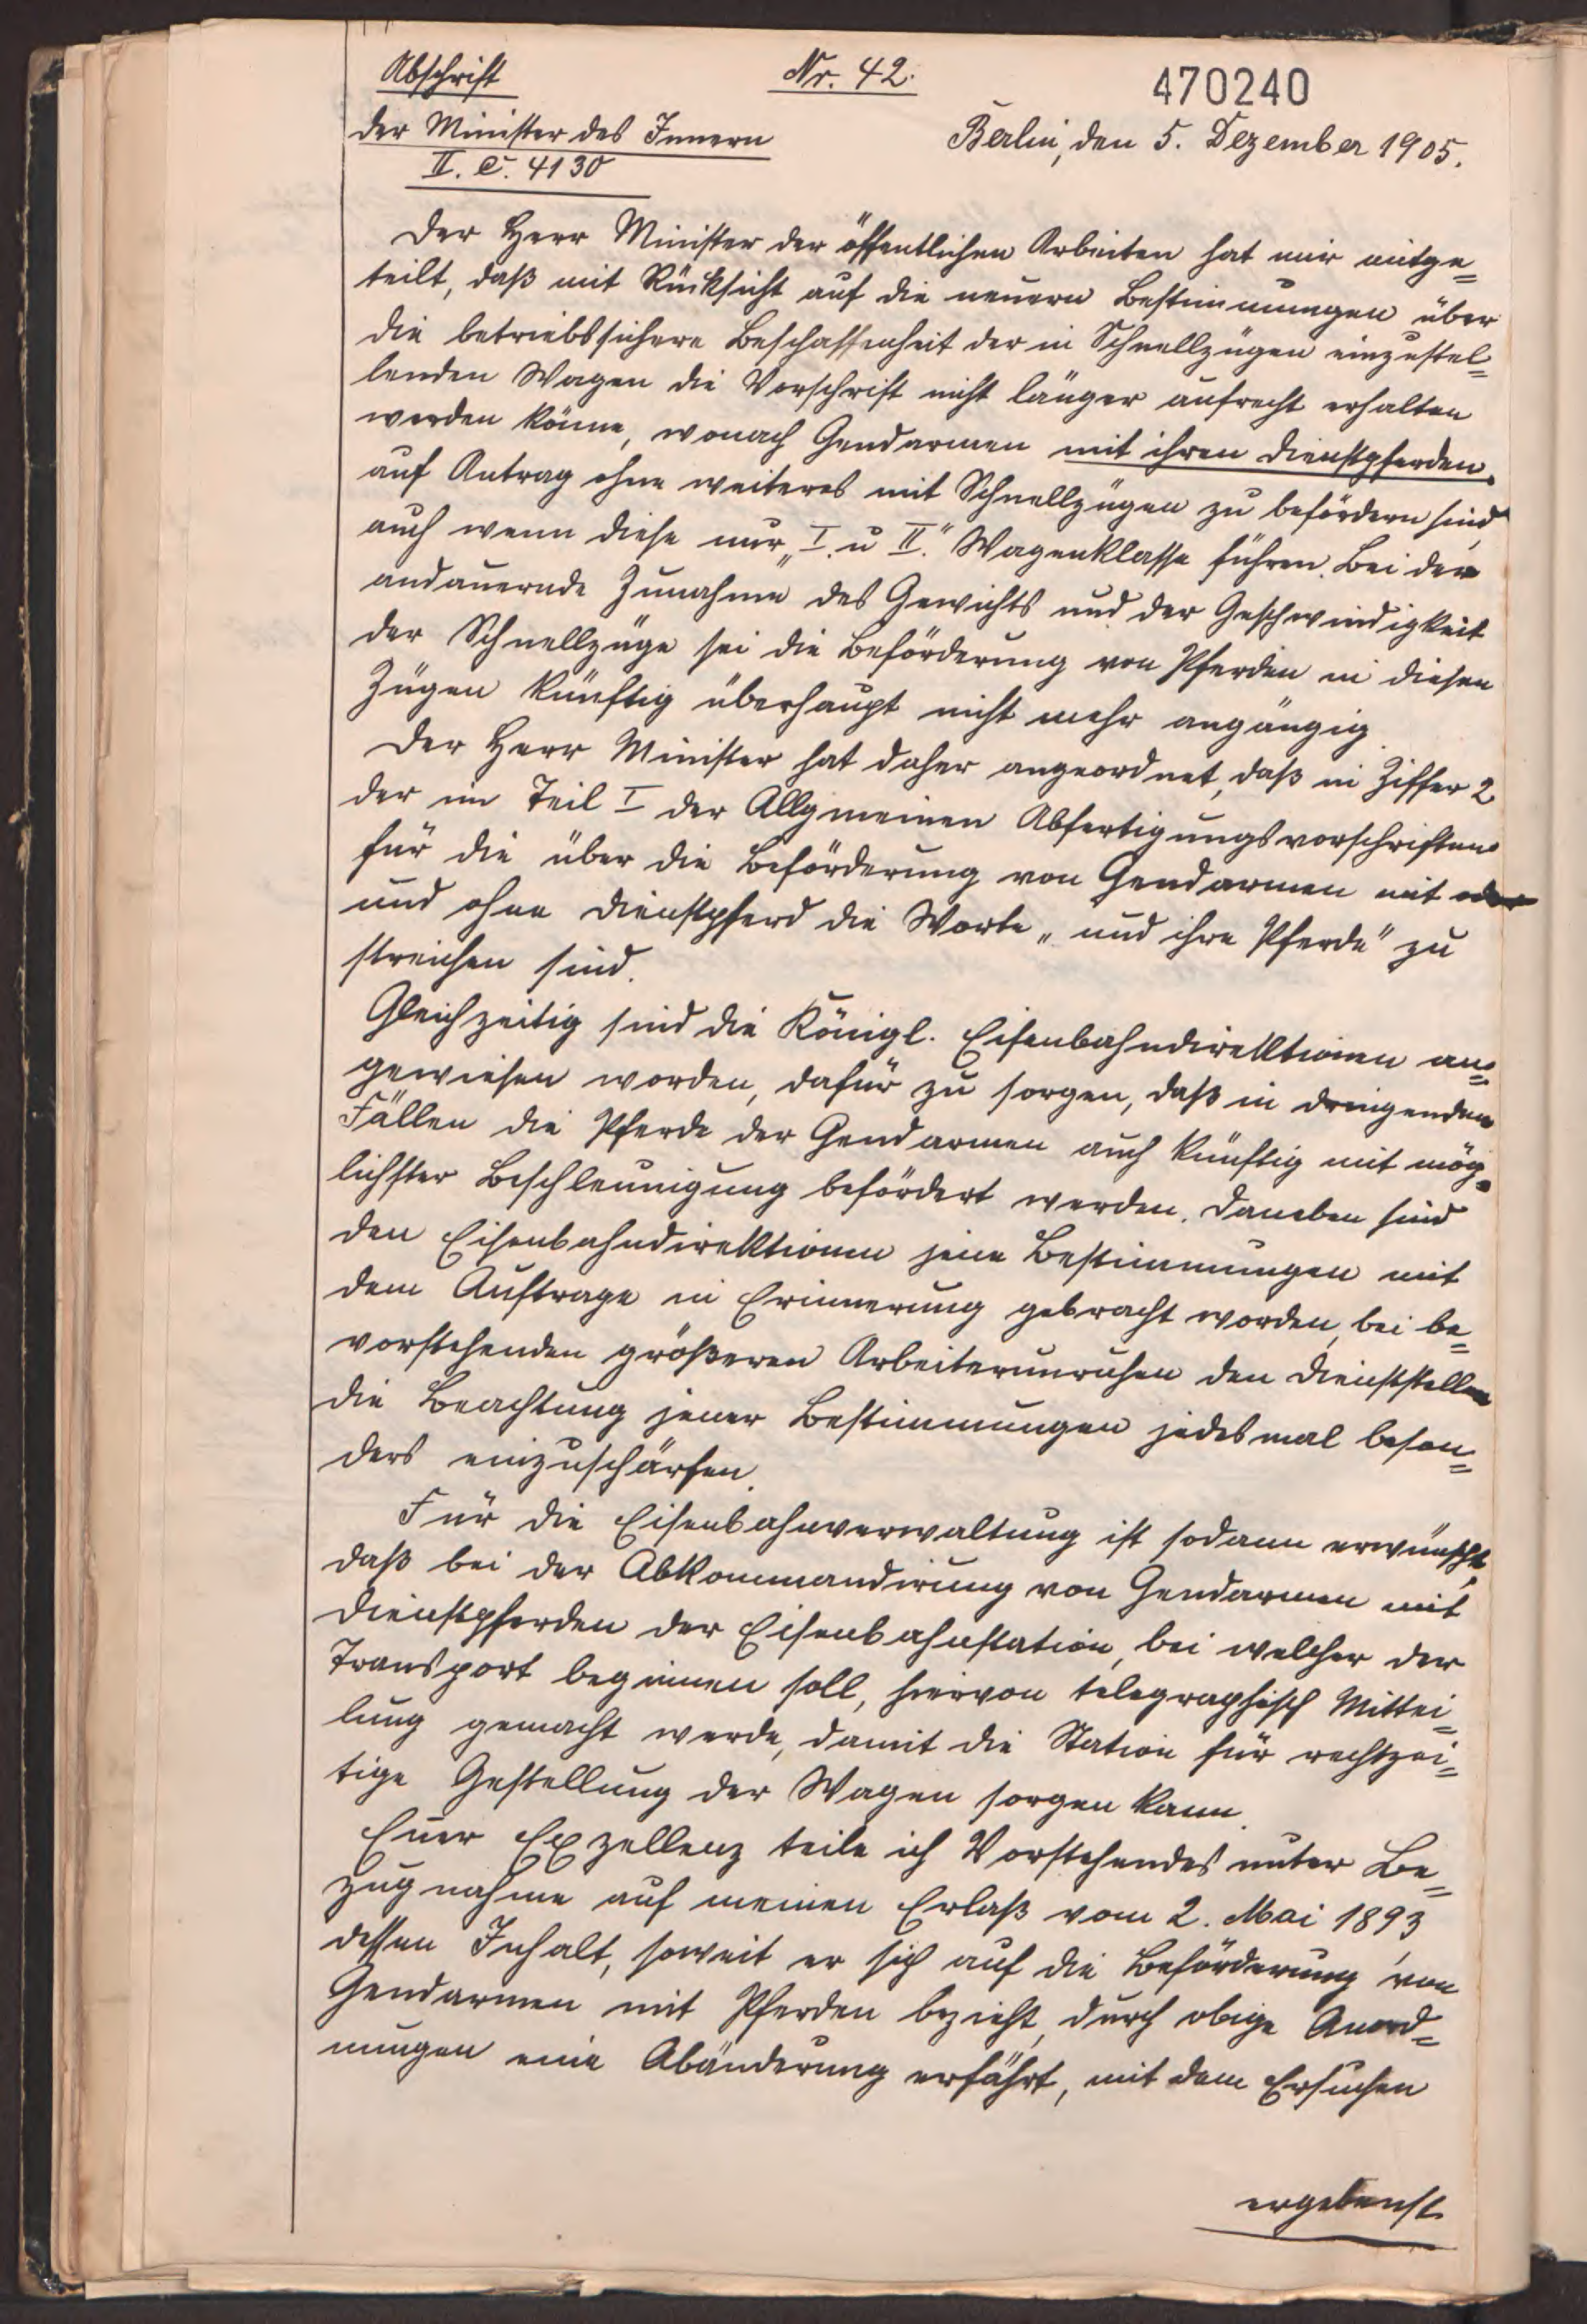 Abschrift
Nr. 42.
470240
Der Minister des Innern
Berlin, den 5. Dezember 1905.
II. C. 4130
Der Herr Minister der öffentlichen Arbeiten hat mir mitge=
teilt, daß mit Rücksicht auf die neuern Bestimmungen über
die betriebssichere Beschaffenheit der in Schnellzügen einzustel=
lenden Wagen die Vorschrift nicht länger aufrecht erhalten
werden könne, wonach Gendarmen mit ihren Dienstpferden
auf Antrag ohne weiteres mit Schnellzügen zu befördern sind,
auch wenn diese nur „I. u II." Wagenklasse führen. Bei der
andauernde Zunahme des Gewichts und der Geschwindigkeit
der Schnellzüge sei die Beförderung von Pferden in diesen
Zügen künftig überhaupt nicht mehr angängig.
Der Herr Minister hat daher angeordnet, daß in Ziffer 2
der im Teil I der Allgmeinen Abfertigungsvorschriften
für die über die Beförderung von Gendarmen mit oder
und ohne Dienstpferd die Worte „und ihre Pferde" zu
streichen sind.
Gleichzeitig sind die Königl. Eisenbahndirektionen an=
gewiesen worden, dafür zu sorgen, daß in dringenden
Fällen die Pferde der Gendarmen auch künftig mit mög=
lichster Beschleunigung befördert werden. Daneben sind
den Eisenbahndirektionen jene Bestimmungen mit
dem Auftrage in Erinnerung gebracht worden, bei be=
vorstehenden größeren Arbeiterunruhen den Dienststellen
die Beachtung jener Bestimmungen jedesmal beson=
ders einzuschärfen.
Für die Eisenbahnverwaltung ist sodann erwünscht,
daß bei der Abkommandirung von Gendarmen mit
Dienstpferden der Eisenbahnstation, bei welcher der
Transport beginnen soll, hiervon telegraphisch Mittei=
lung gemacht werde, damit die Station für rechtzei=
tige Gestellung der Wagen sorgen kann.
Euer Exzellenz teile ich Vorstehendes unter Be=
zugnahme auf meinen Erlaß vom 2. Mai 1893,
dessen Inhalt, soweit er sich auf die Beförderung von
Gendarmen mit Pferden bezieht, durch obige Anord=
nungen eine Abänderung erfährt, mit dem Ersuchen
ergebenst